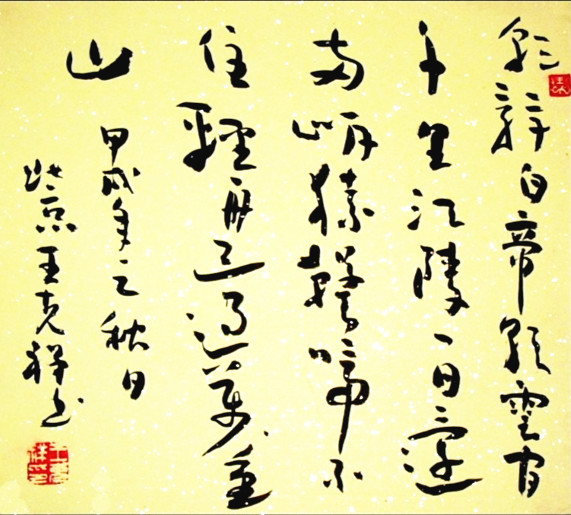 朝辭白帝彩雲間
千里江陵一日還
兩岸猿聲啼不
住輕舟已過萬重
山
甲戌年之秋日
京王克祥书